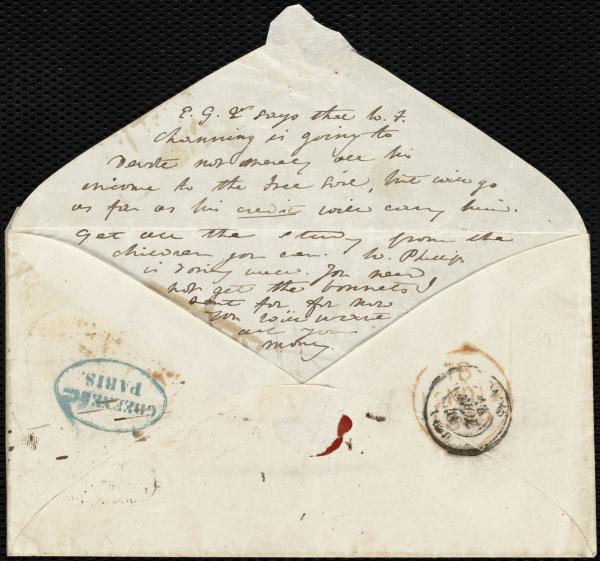 E. G. L says that W. F.
Channing is going to
Devote not merely all his
income to the Free Soil, but will go
as far as his credit will carry him.
Get all the study from the
children you can. W. Phillips
is doing well. You need
not get the bonnets I
sent for, for now
you will want
all you
money
GREENE & C
PARIS.